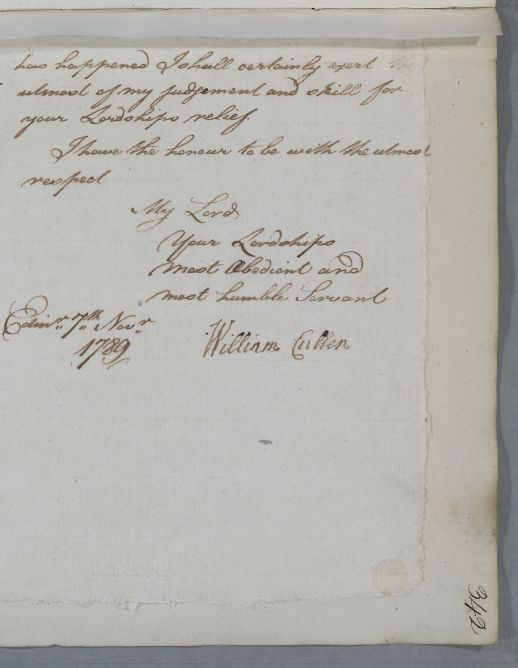 has happened I shall certainly exert the
utmost of my judgement and skill for
your Lordships relief
I have the honour to be with the utmost
respect
My Lord
Your Lordships
most obedient and
most humble Servant
Edinr. 7th. Novr.
1789
William Cullen
342